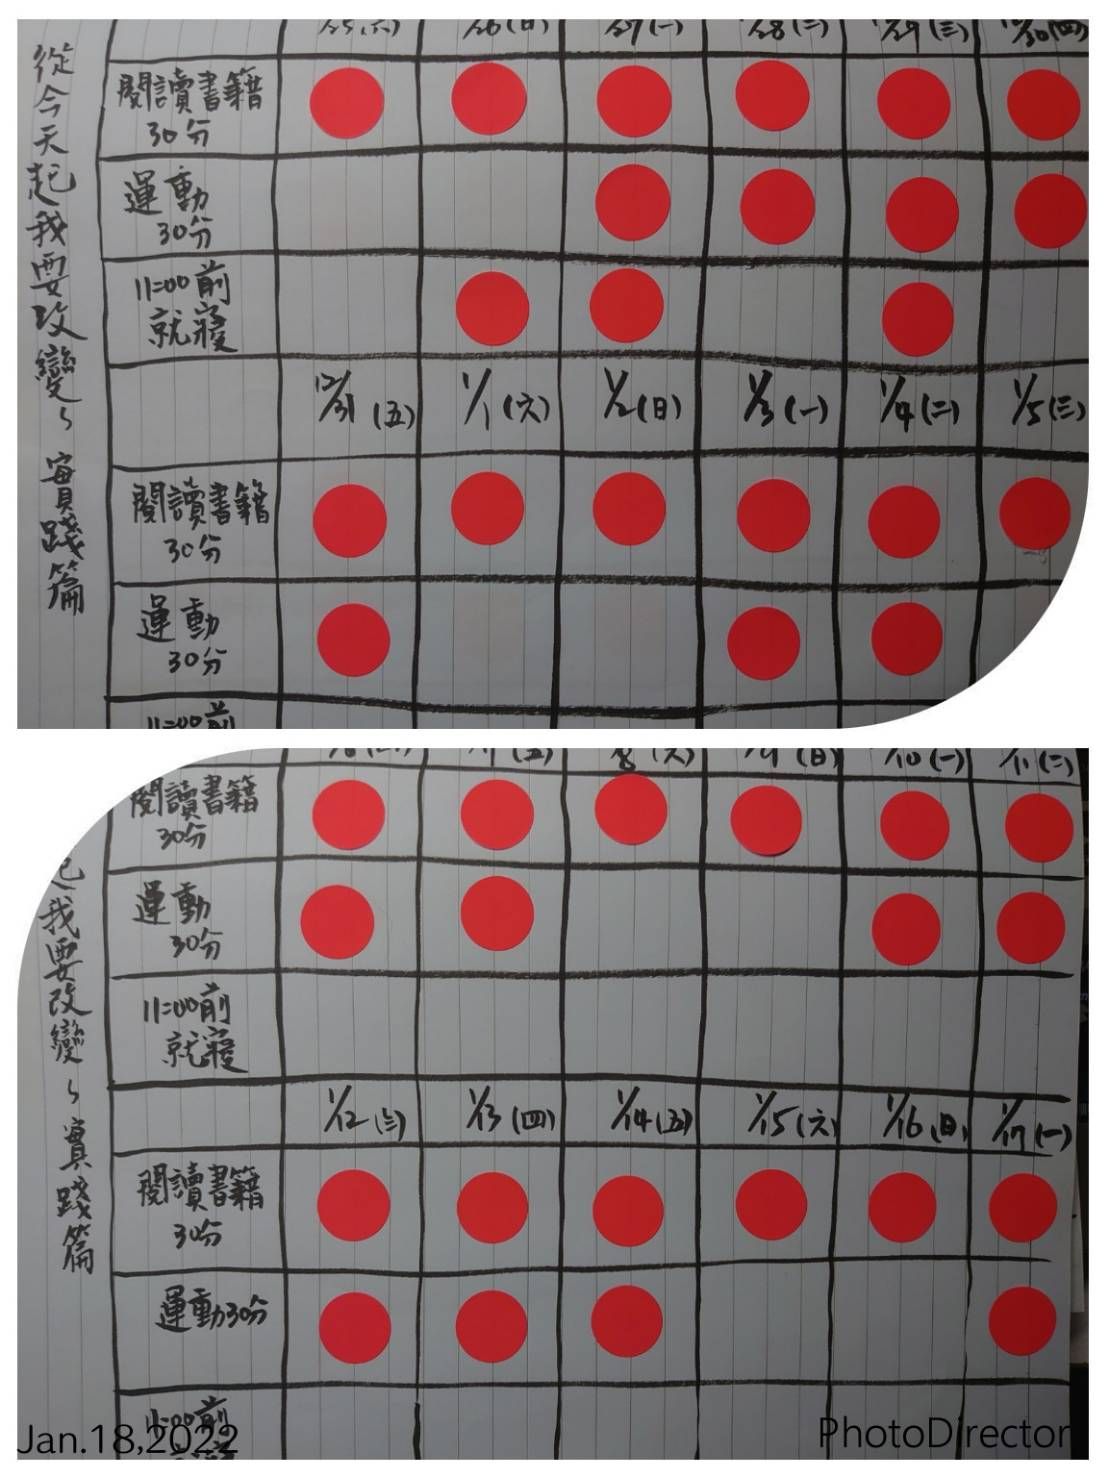 從今天起我要改變、實踐篇
12/25(六) 12/26(日) 12/27(一) 12/28(二) 12/29(三) 12/30(四)
閱讀書籍
30分
運動
30分
11:00前
就寢
12/31(五) 1/1(六) 1/2(日) 1/3(一) 1/4(二) 1/5(三)
閱讀書籍
30分
運動
30分
11:00前
起我要改變、實踐篇
1/7(五) 1/8(六) 1/9(日) 1/10(一) 1/11(二)
閱讀書籍
30分
運動
30分
11:00前
就寢
1/12(三) 1/13(四) 1/14(五) 1/15(六) 1/16(日) 1/17(一)
閱讀書籍
30分
運動30分
11:00前
Jan.18,2022
PhotoDirector